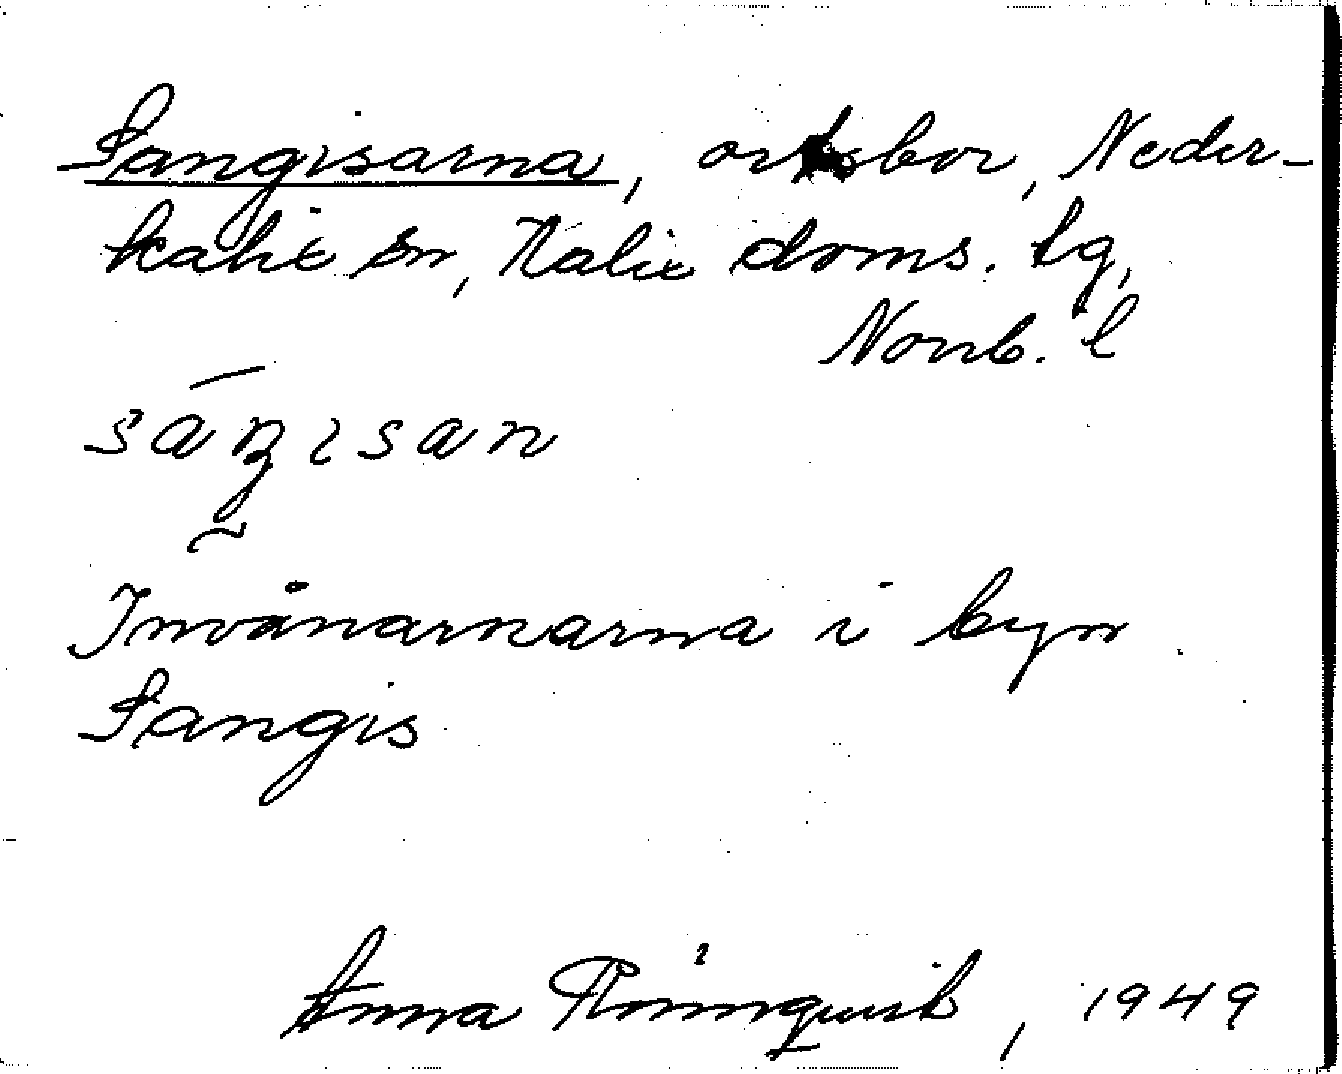 Sangisarna, ortsbor, Neder-
kalix sn, Kalix doms. tg,
Norrb. l
saŋisan
Invånarnarna i byn
Sangis
Anna Rönnquist, 1949